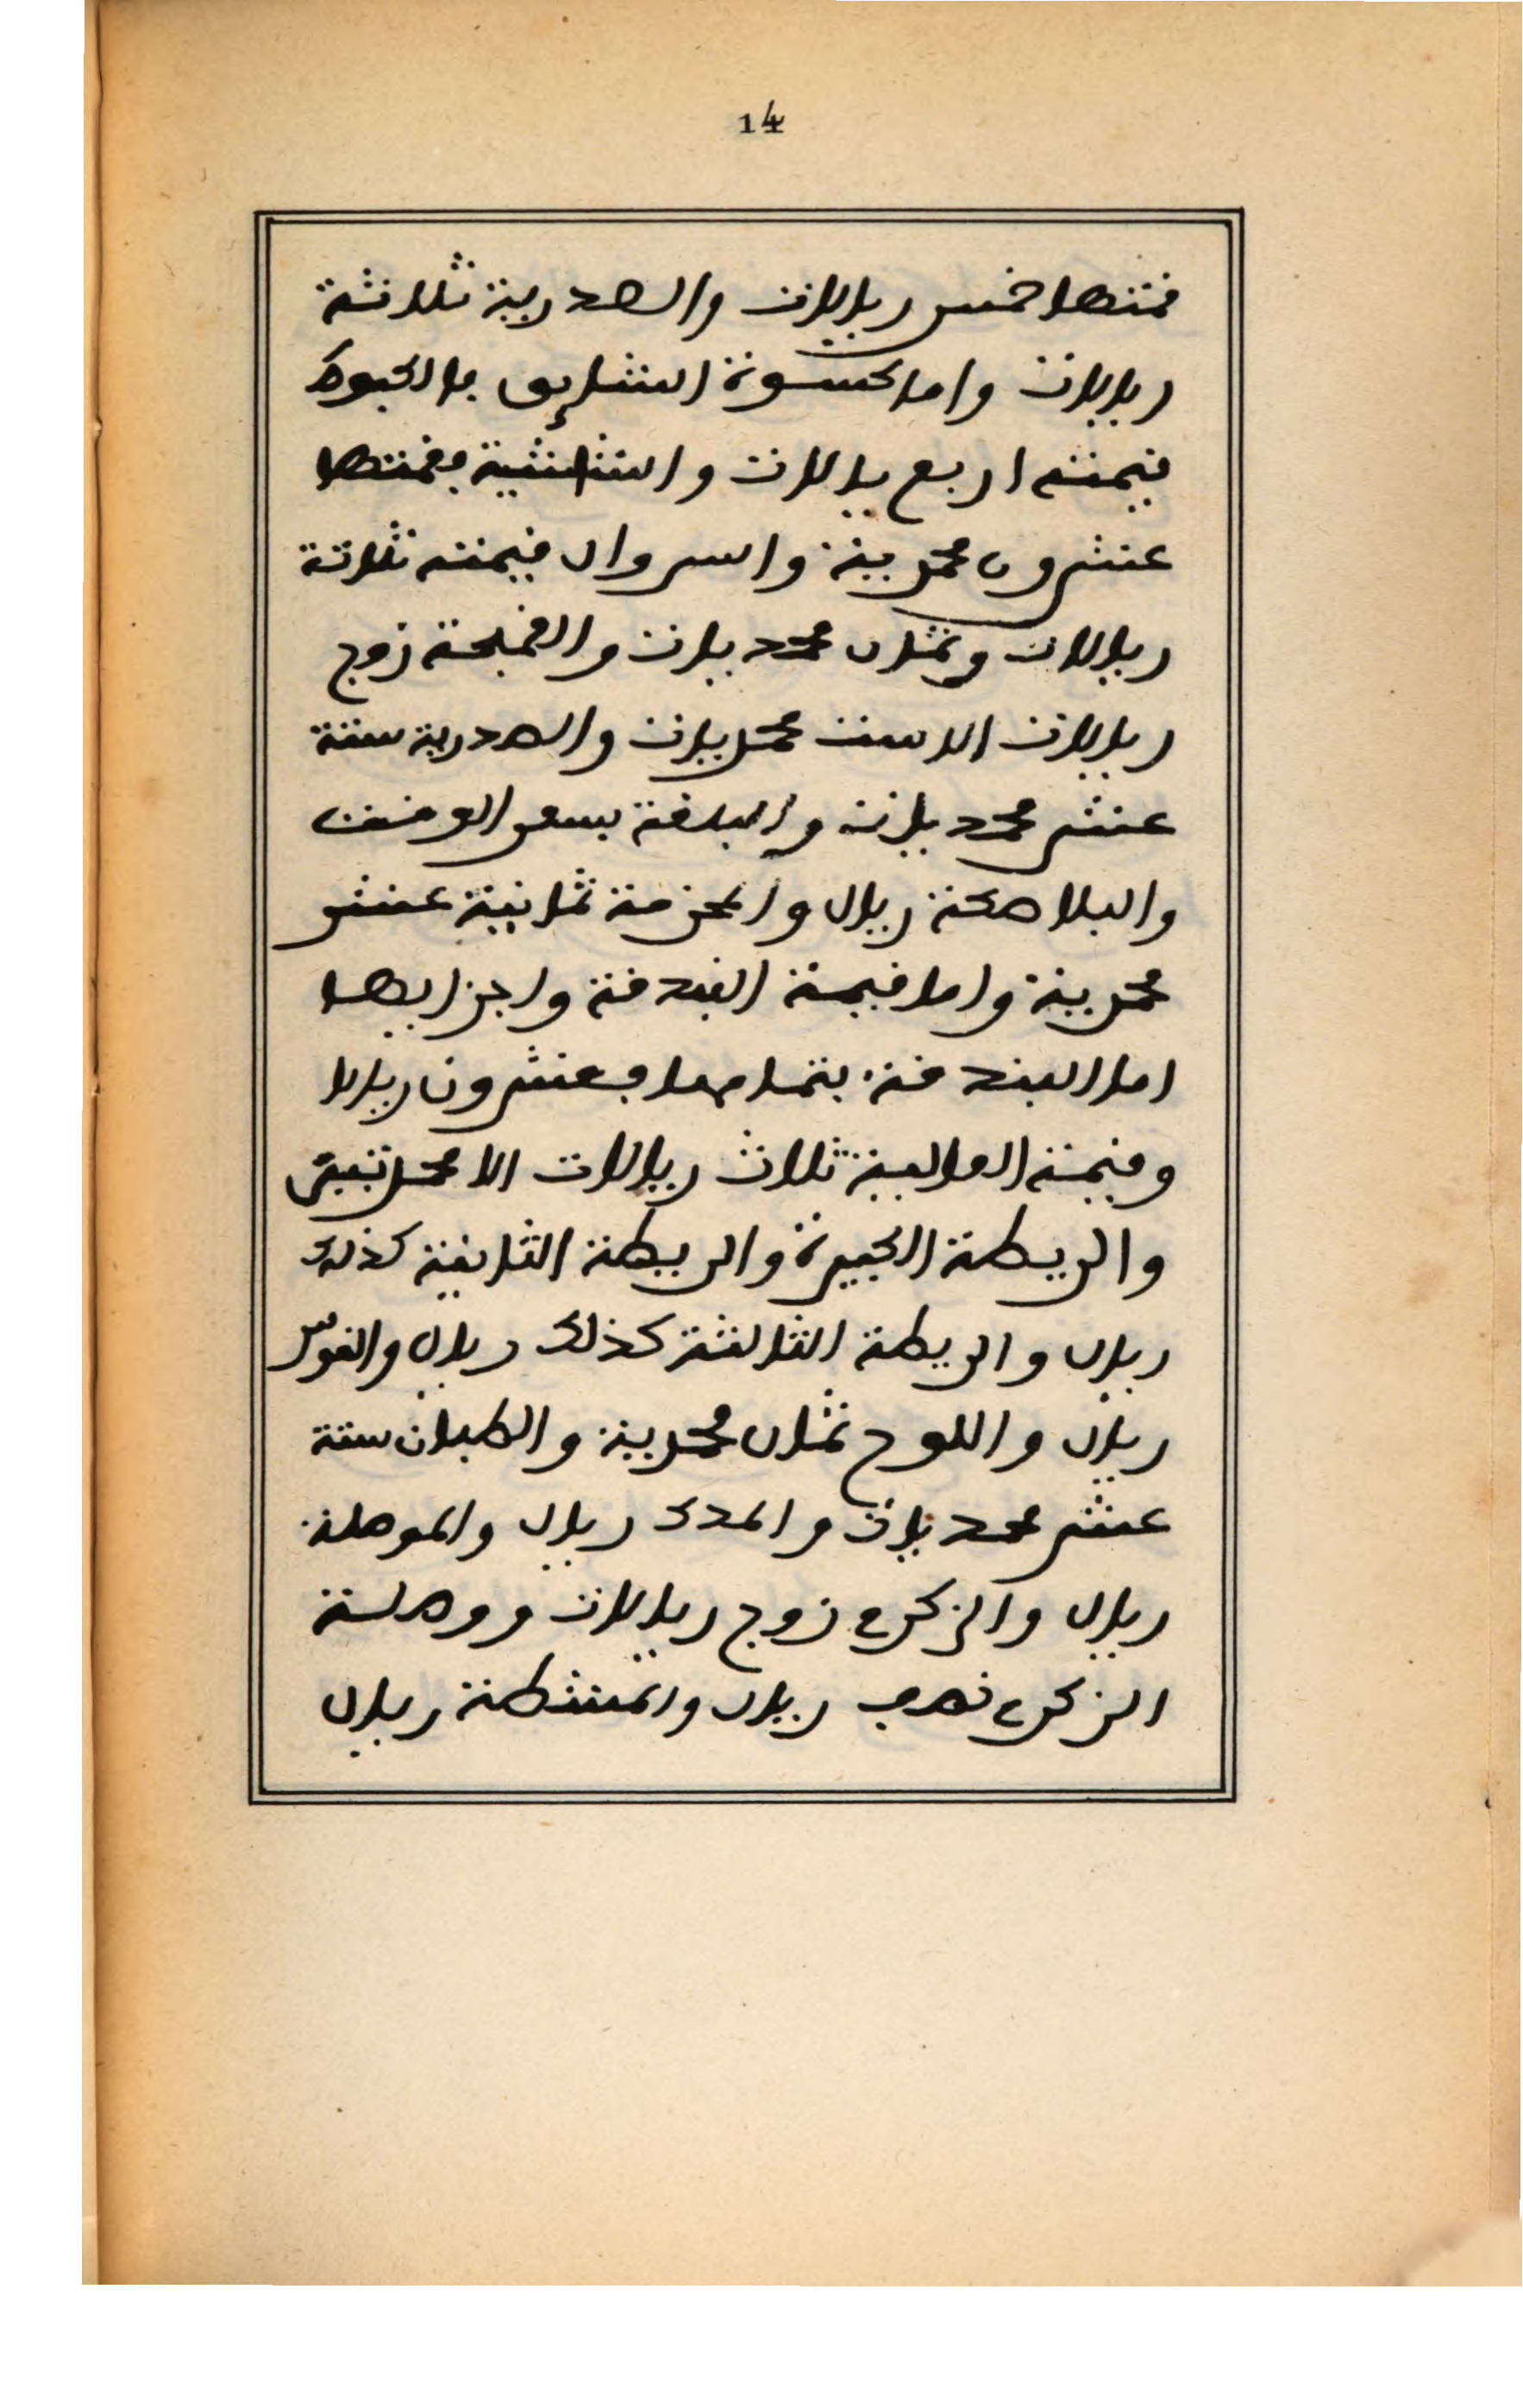 14
فمتها خمس ريالات والصدرية ثلاثة
ريالات واما كسوة الشايق بالكبوط
فيمته اربع يالات والشاشية بقمتها
عشرون محمدية والسروال فيمته ثلاثة
ريالات وثمان محمديات والقمجة زوج
ريالات الا ست محمديات والصدرية ستة
عشر محمديات والبلغة بسعر الوقت
والبلاصكة ريال والحزمة ثمانية عشر
محمدية واما فيمة البندقة واجزايها
اما البندقة بتمامها بعشرون ريالا
وفيمة الغالبية ثلاث ريالات الا محمديتين
والريطة الكبيرة والريطة الثانية كذلك
ريال والريطة الثالثة كذلك ريال والقوس
ريال واللوح ثمان محمدية والطبان ستة
عشر محمديات والمدك ريال والموصلة
ريال والزكرم زوج ريالات ووصلة
الزكرم نصف ريال والمشطة ريال